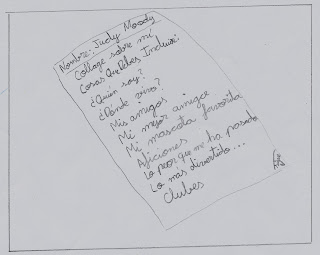 Nombre: Judy Moody
Collage sobre mí
Cosas Que Debes Incluir:
¿Quién soy?
¿Dónde vivo?
Mis amigos
Mi mejor amigo
Mi mascota favorita
Aficiones
Lo peor que me ha pasado
Lo mas divertido...
Clubes